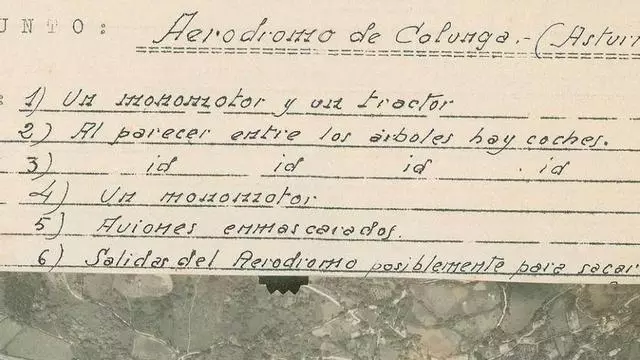 UNTO: Aerodromo de Colunga.-(Astur
1) Un monomotor y un tractor
2) Al parecer entre los árboles hay coches.
3) id id id . id
4) Un monomotor
5) Aviones enmascarados.
6) Salidas del Aerodromo posiblemente para sacar